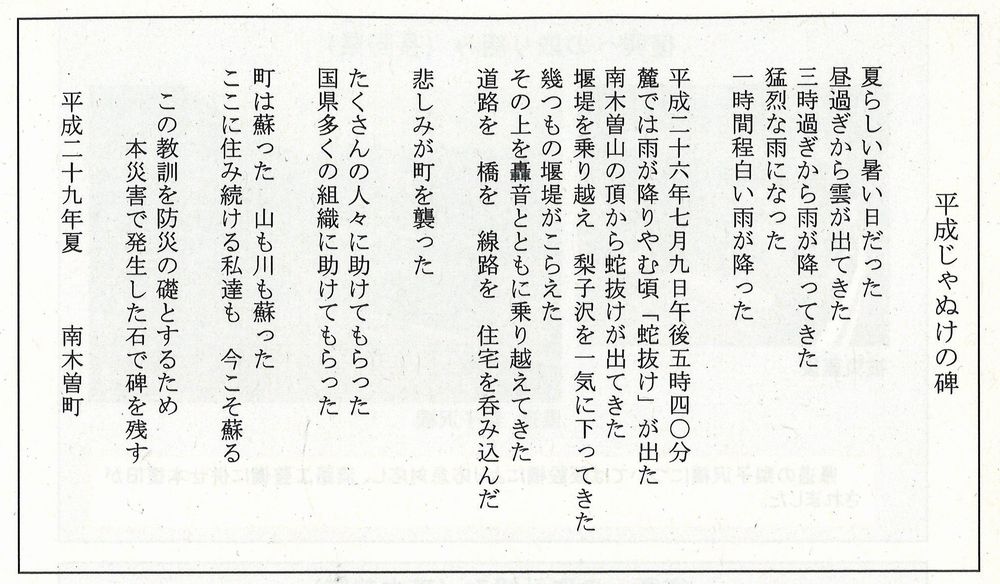 平成じゃぬけの碑
夏らしい暑い日だった
昼過ぎから雲が出てきた
三時過ぎから雨が降ってきた
猛烈な雨になった
一時間程白い雨が降った
平成二十六年七月九日午後五時四〇分
麓では雨が降りやむ頃「蛇抜け」が出た
南木曽山の頂から蛇抜けが出てきた
堰堤を乗り越え　梨子沢を一気に下ってきた
幾つもの堰堤がこらえた
その上を轟音とともに乗り越えてきた
道路を　橋を　線路を　住宅を呑み込んだ
悲しみが町を襲った
たくさんの人々に助けてもらった
国県多くの組織に助けてもらった
町は蘇った　山も川も蘇った
ここに住み続ける私達も　今こそ蘇る
この教訓を防災の礎とするため
本災害で発生した石で碑を残す
平成二十九年夏　　南木曽町